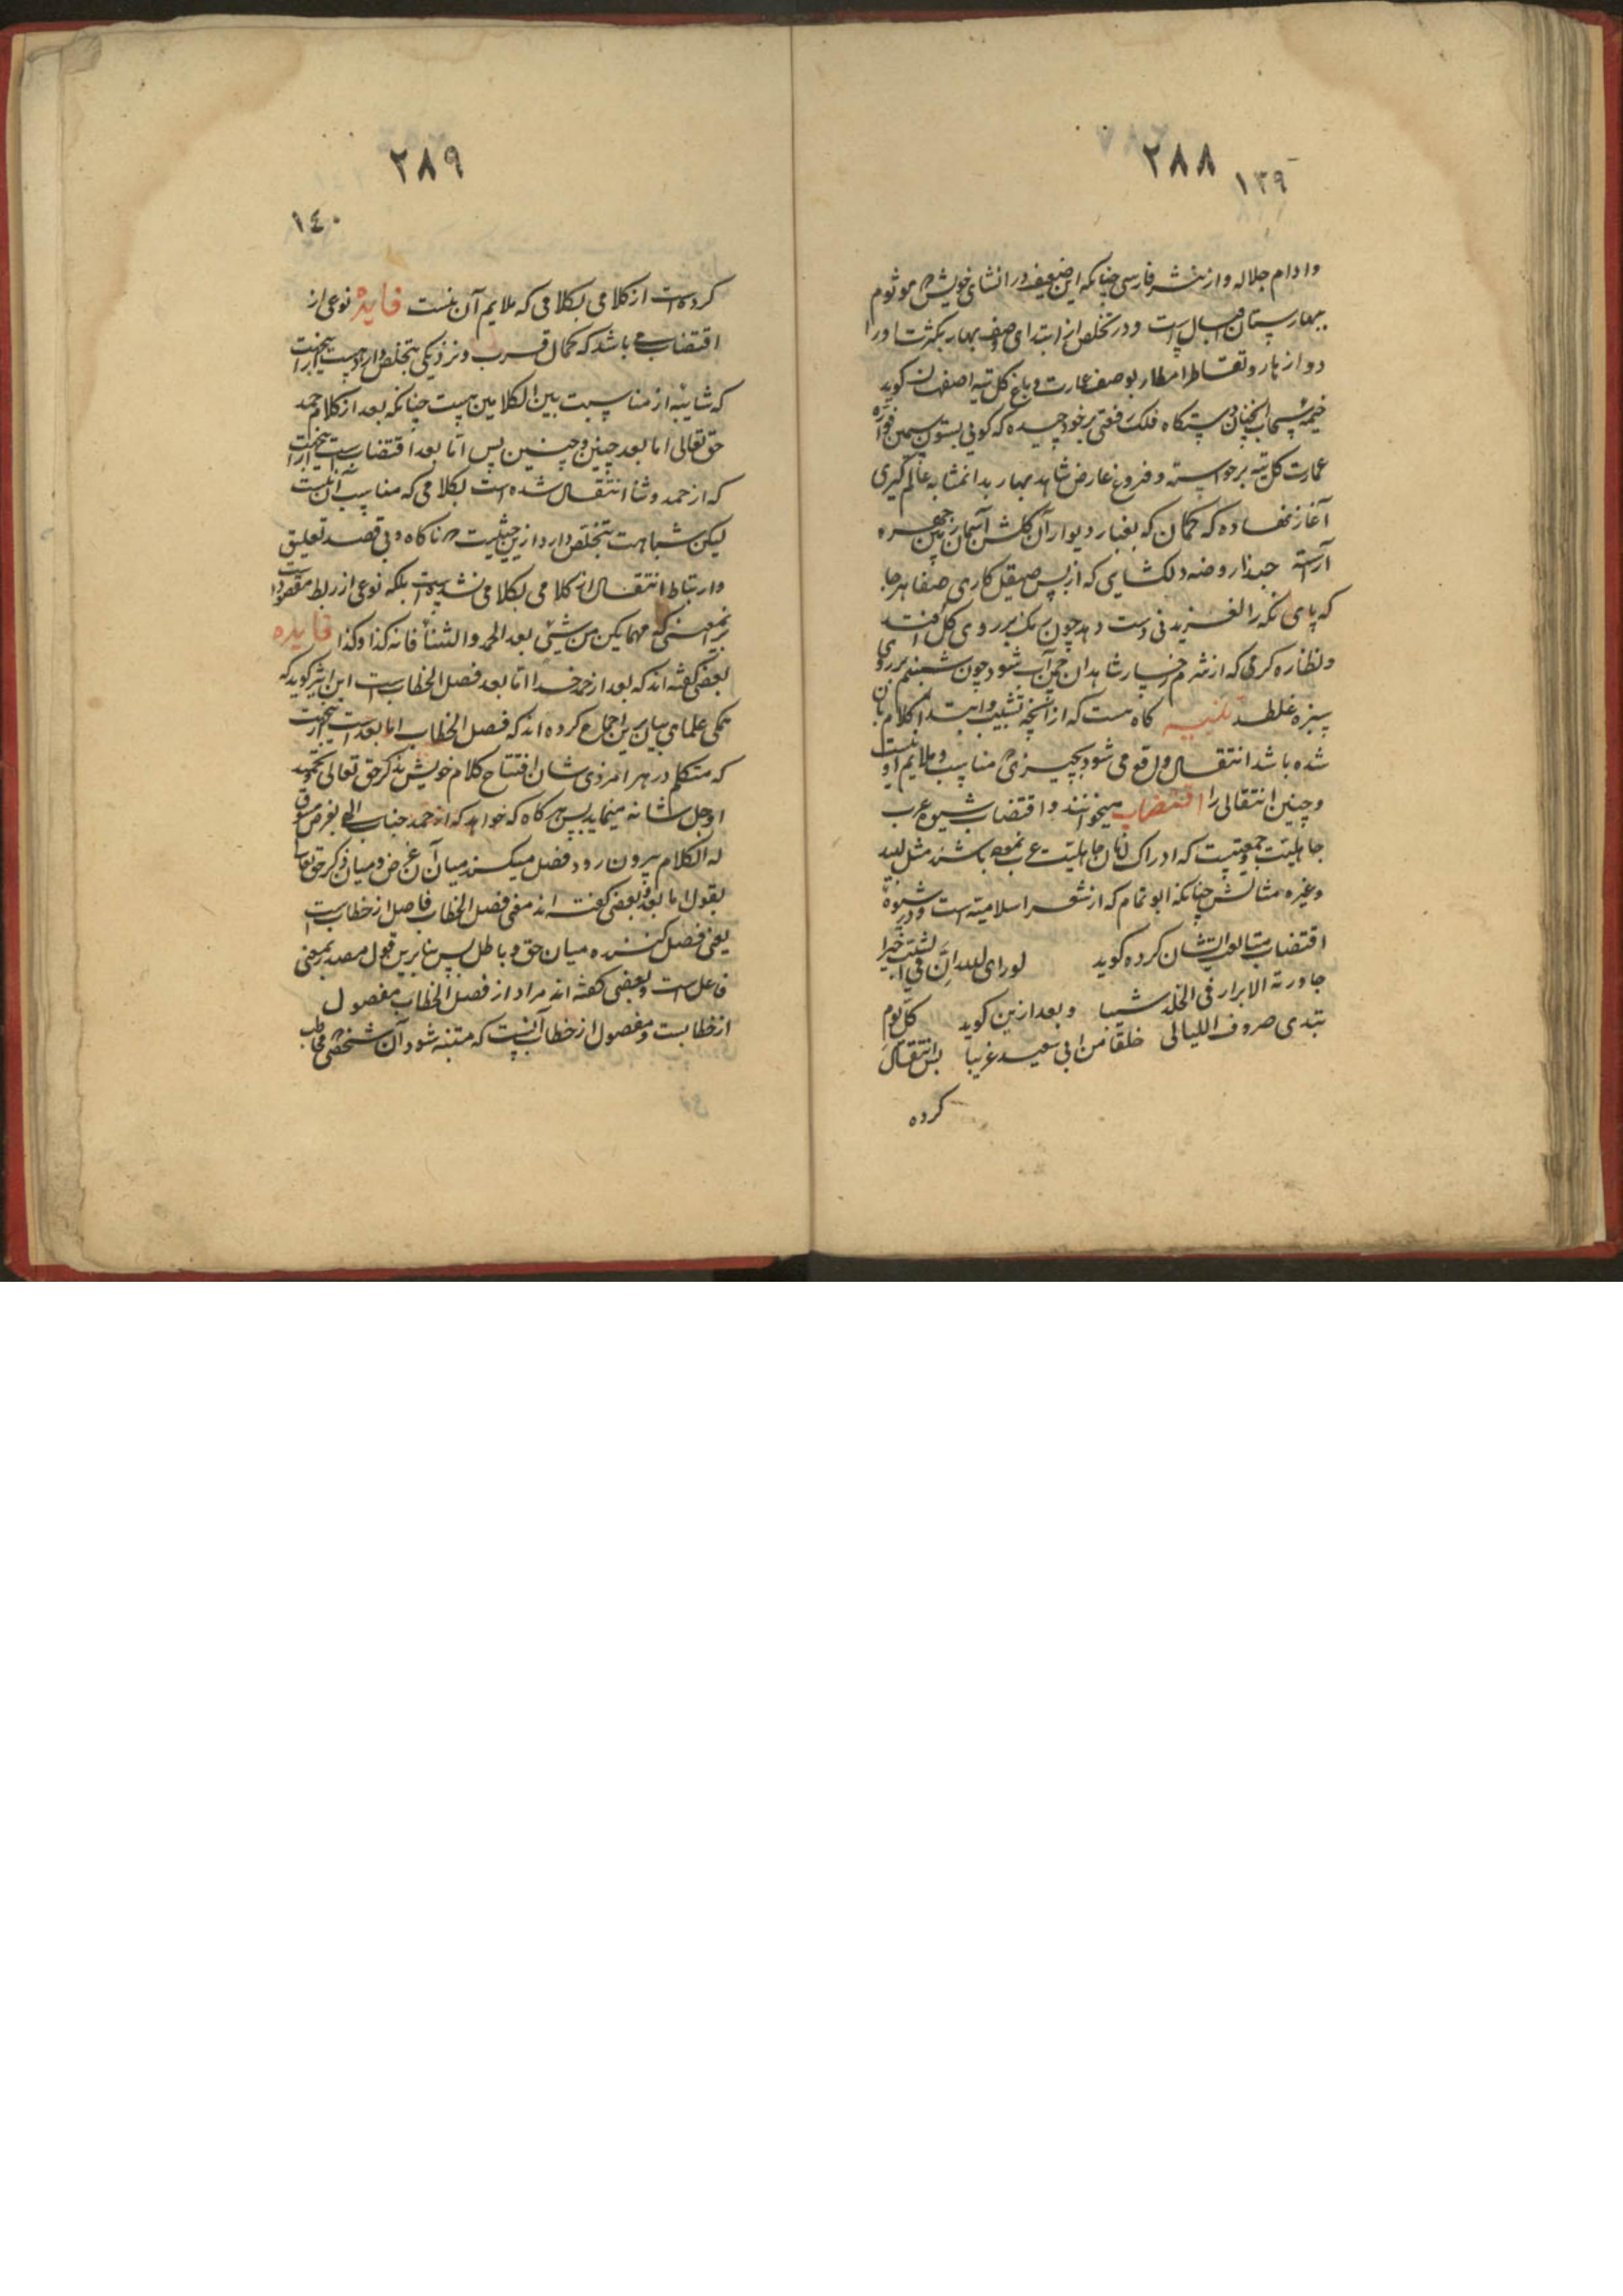 ٢٨٨
١٣٩
وادام جلاله واز نثر فارسی چنانکه این ضعیف در انشای خویش موثوم
ببهارستان خیال است ودر تخلص از ابتدای وصف بهار بکثرت اورا
دو ازهار وتقاطر امطار بوصف عمارت و باغ کل تپه اصفهان کوید
خیمهٔ سحاب انچنان دستکاه فلک رفعتی برخود چیده که کوئی بستون سیمین فوارهٔ
عمارت کل تپه برخواسته وفروغ عارض شاهد بهار بدانمثابه عالم کیری
آغاز نهاده که کمان که بغبار دیوار آن کلشن آسمان زمین چهره
آراسته حبذا روضه دلکشایی که از بس صیقل کاری صفا هرجا
که پای نکه را لغزیدنی دست دهد چون رنک بر روی کل افتد
ونظاره کرمی که از شرم رخسار شاهدان چمن آب شود چون شبنم بر روی
سبزه غلطد تنبیه کاه هست که از آنچه تشبیب وابتدا کلام بان
شده باشد انتقال واقع می شود بچیزی که مناسب وملایم او نیست
وچنین انتقالی را اقتضاب میخوانند واقتضاب شیوه عرب
جاهلیت وجمعیست که ادراک زمان جاهلیت عرب نموده باشند مثل لبید
وغیره مثالش چنانکه ابو تمام که از شعر اسلامیه است ودر شیوهٔ
اقتضاب متابعت ایشان کرده کوید لو رای الله ان فی الشیب خیرا
جاورته الابرار فی الخلد شیبا وبعد ازین کوید کل یوم
تبدی صروف اللیالی خلقا من ابی سعید غریبا پس انتقال
کرده
٢٨٩
١٤٠
کرده است از کلامی بکلامی که ملایم آن نیست فایدهٔ نوعی از
اقتضاب می باشد که کمال قرب ونزدیکی بتخلص دارد ازینجهت
که شایبه از مناسبت بین الکلامین هست چنانکه بعد از کلام حمد
حق تعالی اما بعد چنین وچنین پس اما بعد اقتضاب است ازینجهت
که از حمد وثنا انتقال شده است بکلامی که مناسب آن نیست
لیکن شباهت بتخلص دارد ازین حیثیت که ناکاه وبی قصد تعلیق
وارتباط انتقال از کلامی بکلامی نشده است بلکه نوعی از ربط مقصود است
برینمعنی که مهما یکن من شیئ بعد الحمد والثنأ فانه کذا وکذا فایده
بعضی کفته اند که بعد از حمد خدا اما بعد فصل الخطاب است ابن اثیر کوید که
همکی علمای بیان برین اجماع کرده اند که فصل الخطاب اما بعد است ازینجهت
که متکلم در هر امر ذی شان افتتاح کلام خویش بذکر حق تعالی وتحمید
او جل شانه مینماید پس هرکاه که خواهد که از حمد جناب الهی بغرض مسوق
له الکلام بیرون رود فصل میکند میان آن غرض ومیان ذکر حق تعالی
بقول اما بعد وبعضی کفته اند معنی فصل الخطاب فاصل از خطاب است
یعنی فصل کننده میان حق وباطل پس بنا برین قول مصدر بمعنی
فاعل است وبعضی کفته اند مراد از فصل الخطاب مفصول
از خطابست ومفصول از خطاب آنست که متنبه شود آن شخصی مخاطب